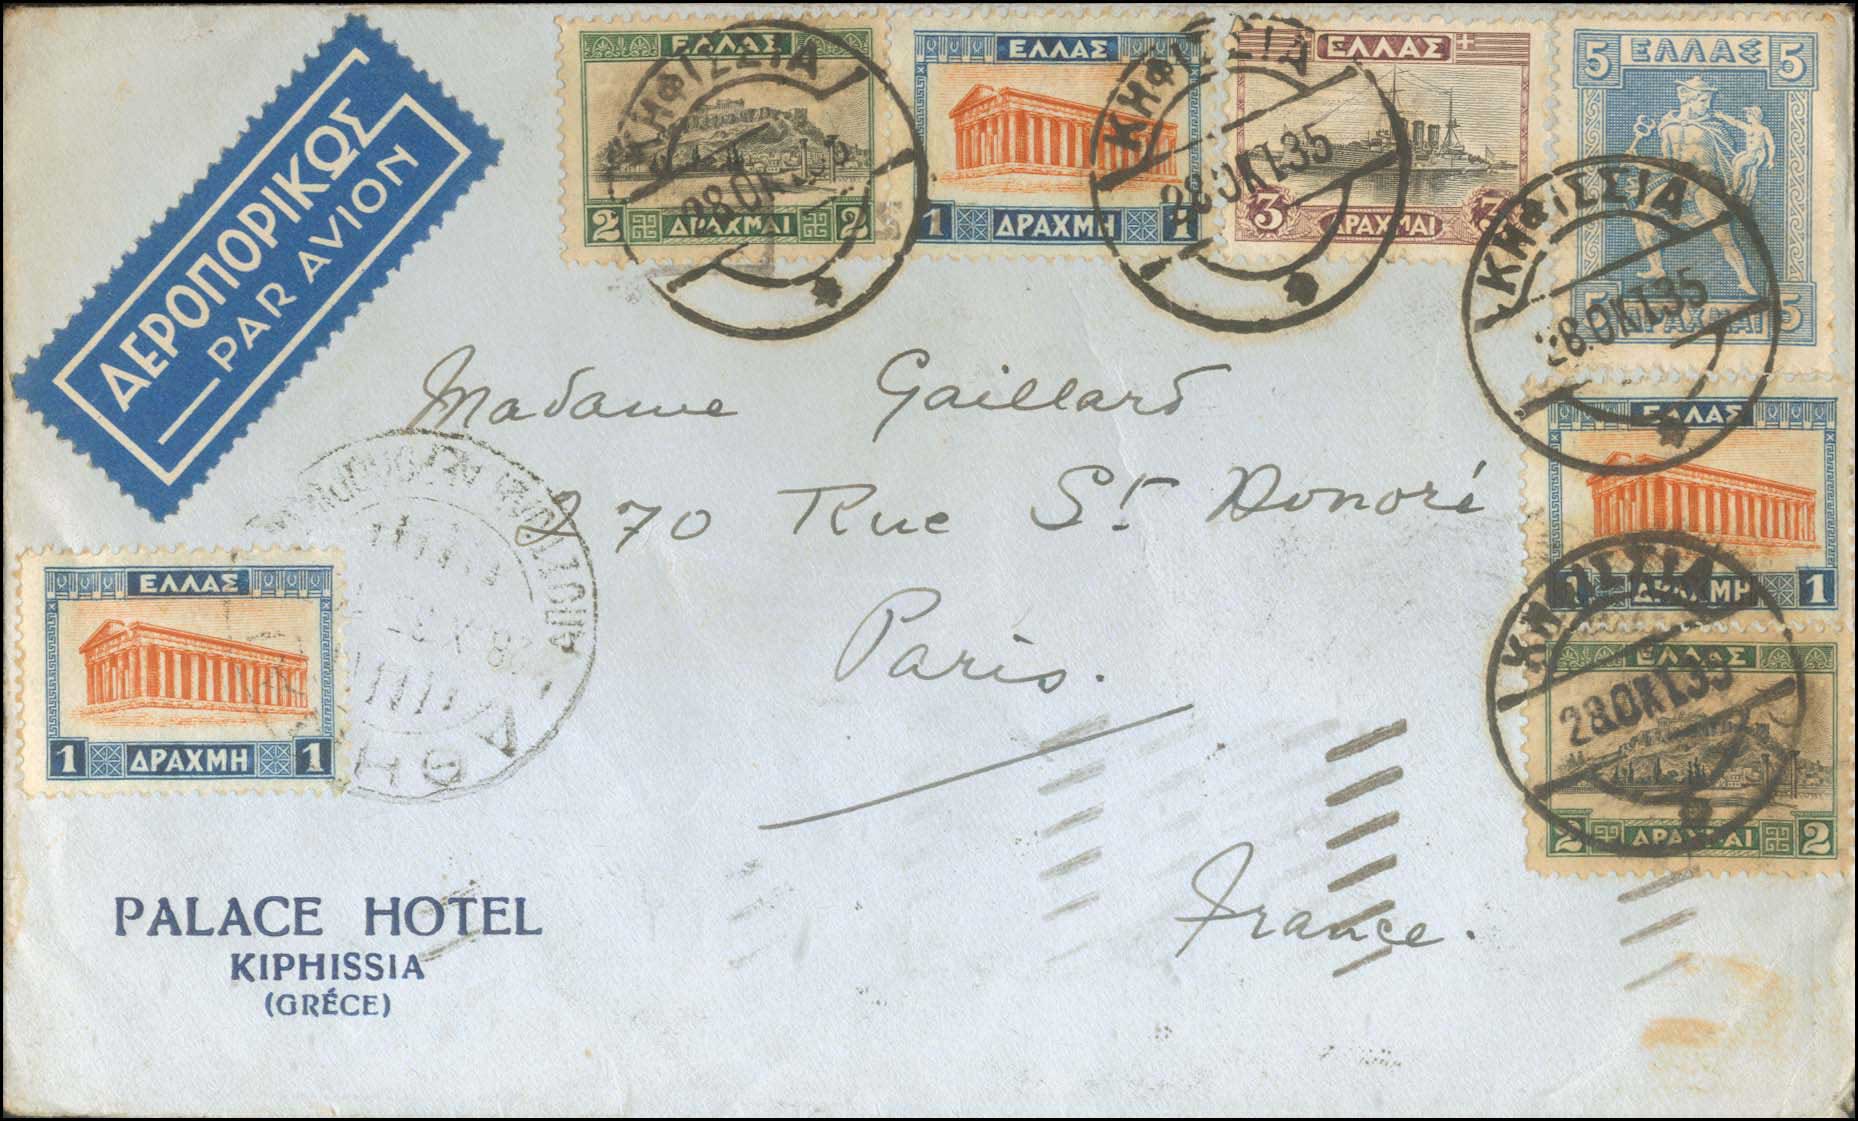 ΑΕΡΟΠΟΡΙΚΩΣ
PAR AVION
ΕΛΛΑΣ
2 ΔΡΑΧΜΑΙ 2
ΕΛΛΑΣ
1 ΔΡΑΧΜΗ 1
ΕΛΛΑΣ
3 ΔΡΑΧΜΑΙ 3
5 ΕΛΛΑΣ 5
5 ΔΡΑΧΜΑΙ 5
ΚΗΦΙΣΣΙΑ
28.ΟΚΤ.35
ΚΗΦΙΣΣΙΑ
28.ΟΚΤ.35
ΚΗΦΙΣΣΙΑ
28.ΟΚΤ.35
Madame Gaillard
270 Rue St Honoré
Paris.
France.
ΕΛΛΑΣ
1 ΔΡΑΧΜΗ 1
ΚΗΦΙΣΣΙΑ
28.ΟΚΤ.35
ΕΛΛΑΣ
2 ΔΡΑΧΜΑΙ 2
ΕΛΛΑΣ
1 ΔΡΑΧΜΗ 1
PALACE HOTEL
KIPHISSIA
(GRÉCE)